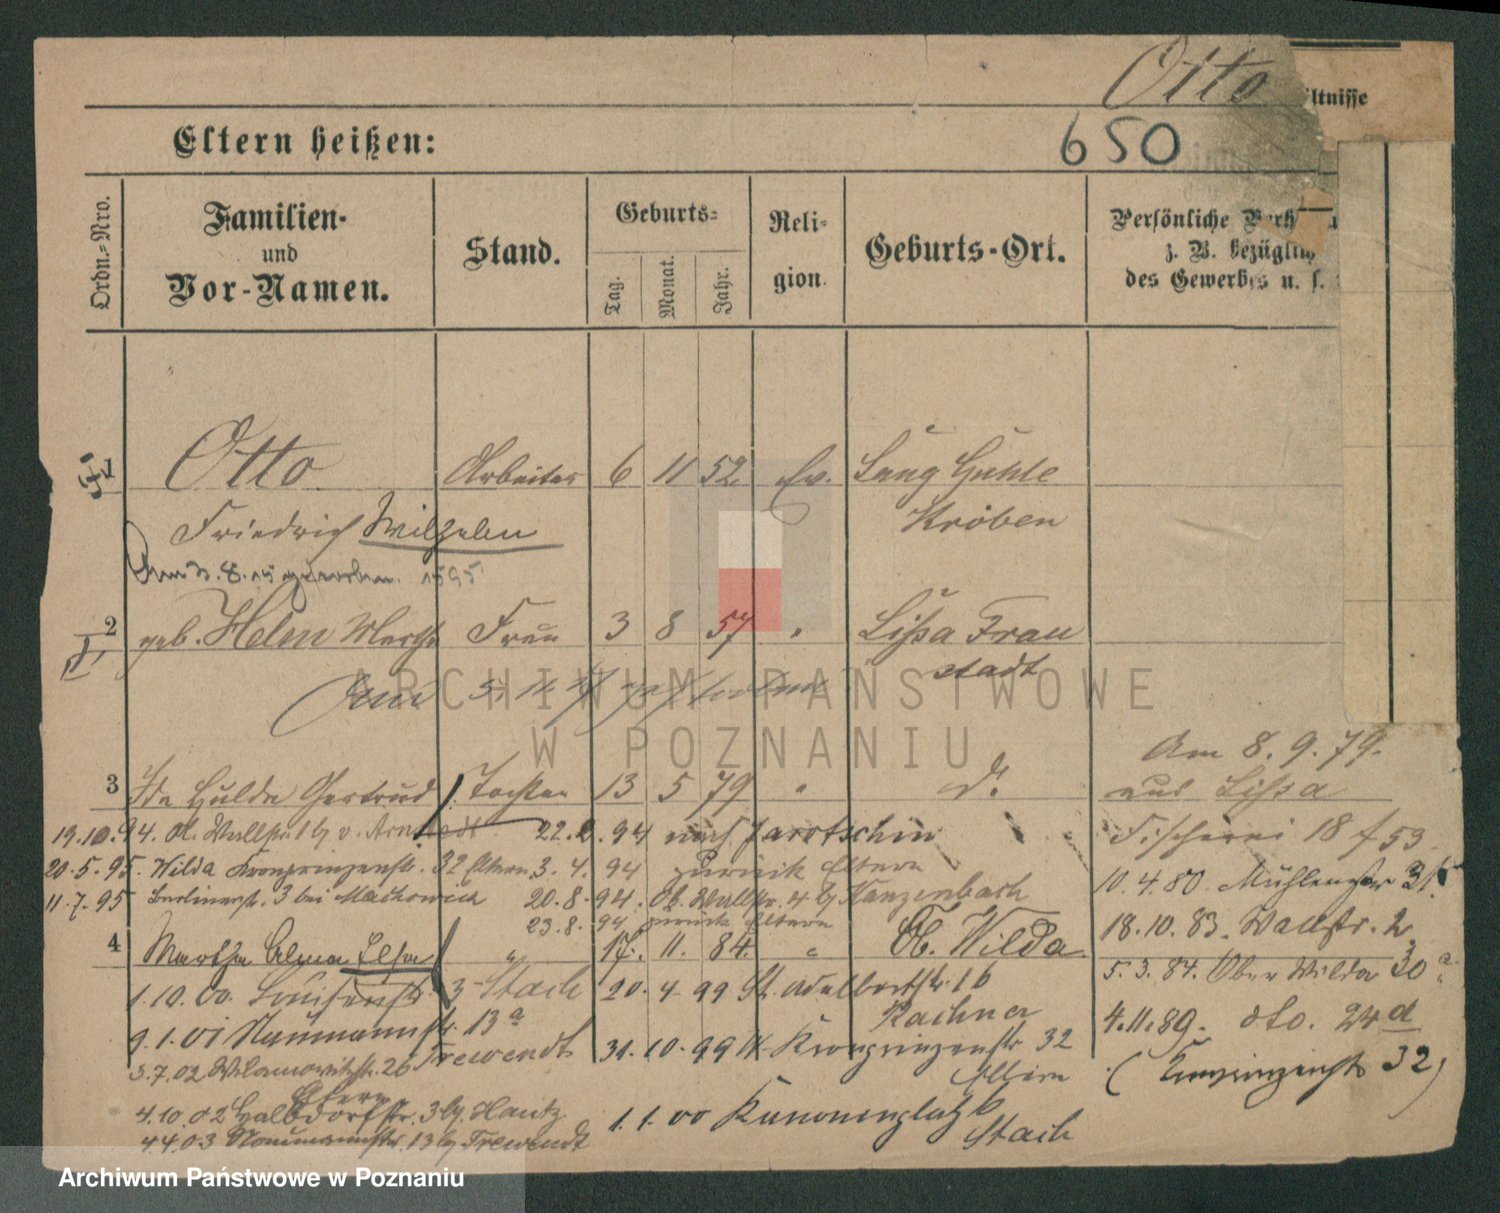 Otto
ltnisse
Eltern heißen:
650
Ordn.-Nro.
Familien-
und
Vor-Namen.
Stand.
Geburts-
Tag.
Monat.
Jahr.
Reli-
gion.
Geburts-Ort.
Persönliche
z. B. bezüglich
des Gewerbes u. s.
1 Otto Arbeiter 6 11 52 Ev. Lang Guhle
Kröben
Friedrich Wilhelm
2 geb. Helm Martha Frau 3 8 57 " Lissa Frau
stadt
Am
ARCHIWUM PAŃSTWOWE
W POZNANIU
Am 8.9.79.
3 Ida Hulda Gertrud Tochter 13 5 79 " d. aus Lissa
19.10.94. Ob. Wallstr. 1 b. v. Arnstedt 22.2.94 nach Jarotschin
Fischerei 18 f 53
20.5.95. Wilda Kronprinzenstr. 32 Eltern 3.4.94 zurück Eltern
10.4.80. Mühlenstr 31
11.7.95 Berlinerstr. 3 bei Maikowick 20.8.94. Ob. Wallstr. 4 b. Kanzenbach
23.8.94 zurück Eltern
18.10.83. Wallstr. 2
4 Martha Alma Elsa " 17. 11. 84. " Ob. Wilda
5.3.84. Ober Wilda 30a
1.10.00. Louisenstr. 3 Stach 20.4.99 St. Adalbertstr. 1b
Kachner
4.11.89. dto. 24d
9.1.01 Naumannstr. 13a
Trewendt
31.10.99 W. Kronprinzenstr 32
Eltern
(Kronprinzenstr 32)
3.7.02 Wilamowitzstr. 26
Eltern
4.10.02 Halbdorfstr. 3 b. Hantz
1.1.00 Kanonenplatz 6
Stach
4.4.03 Naumannstr. 13 b. Trewendt
Archiwum Państwowe w Poznaniu